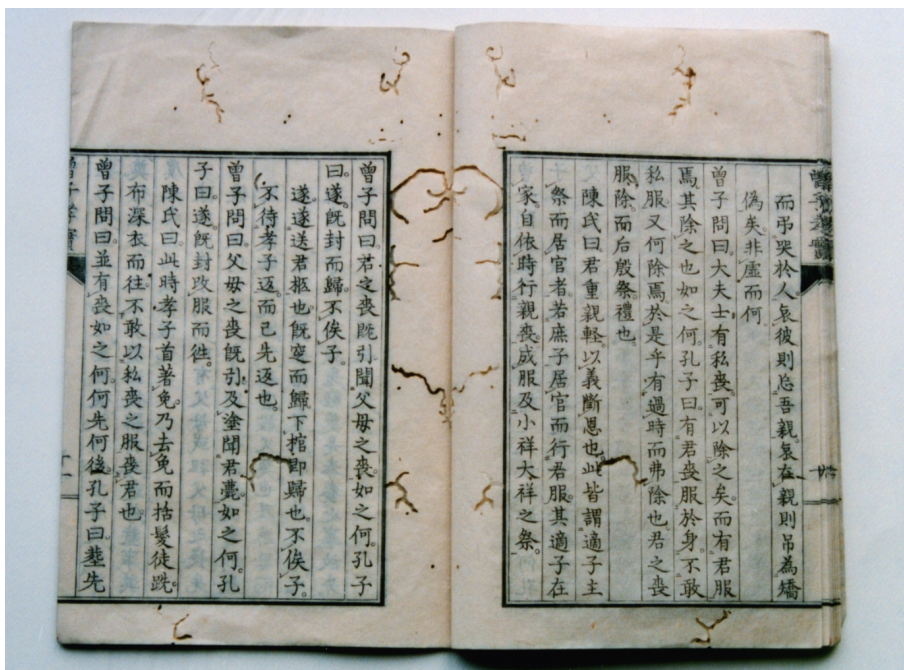 而弔哭於人哀彼則忘吾親哀在親則吊為矯
偽矣非虛而何
曾子問曰大夫士有私喪可以除之矣而有君服
焉其除之也如之何孔子曰有君喪服於身不敢
私服又何除焉於是乎有過時而弗除也君之喪
服除而后殷祭禮也
陳氏曰君重親軽以義斷恩也此皆謂適子主
祭而居官者若庶子居官而行君服其適子在
家自依時行親喪成服及小祥大祥之祭
曾子問曰君之喪既引聞父母之喪如之何孔子
曰遂既封而歸不俟子
遂遂送君柩也既窆而歸下棺即歸也不俟子
不待孝子返而己先返也
曾子問曰父母之喪既引及塗聞君薨如之何孔
子曰遂既封改服而往
陳氏曰此時孝子首著免乃去免而括髮徒跣
布深衣而往不敢以私喪之服喪君也
曾子問曰並有喪如之何何先何後孔子曰塟先